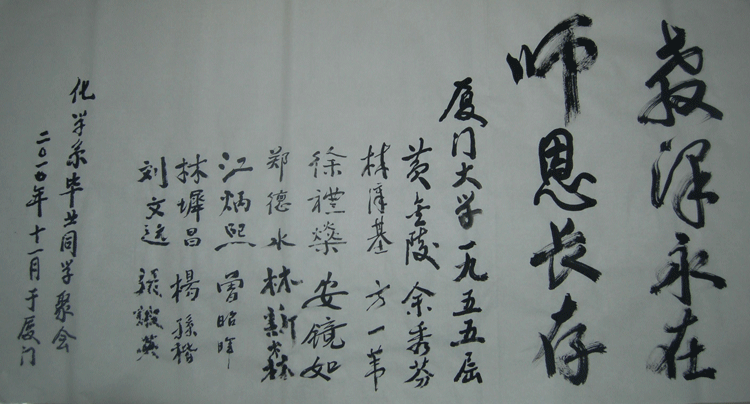 教泽永在
师恩长存
厦门大学一九五五届
黄金陵 余秀芬
林漳基 方一苇
徐禮燊 安镜如
郑德水 林新森
江炳熙 曾昭晖
林墀昌 楊孫楷
刘文远 張
化学系毕业同学聚会
二〇一〇年十一月于厦门